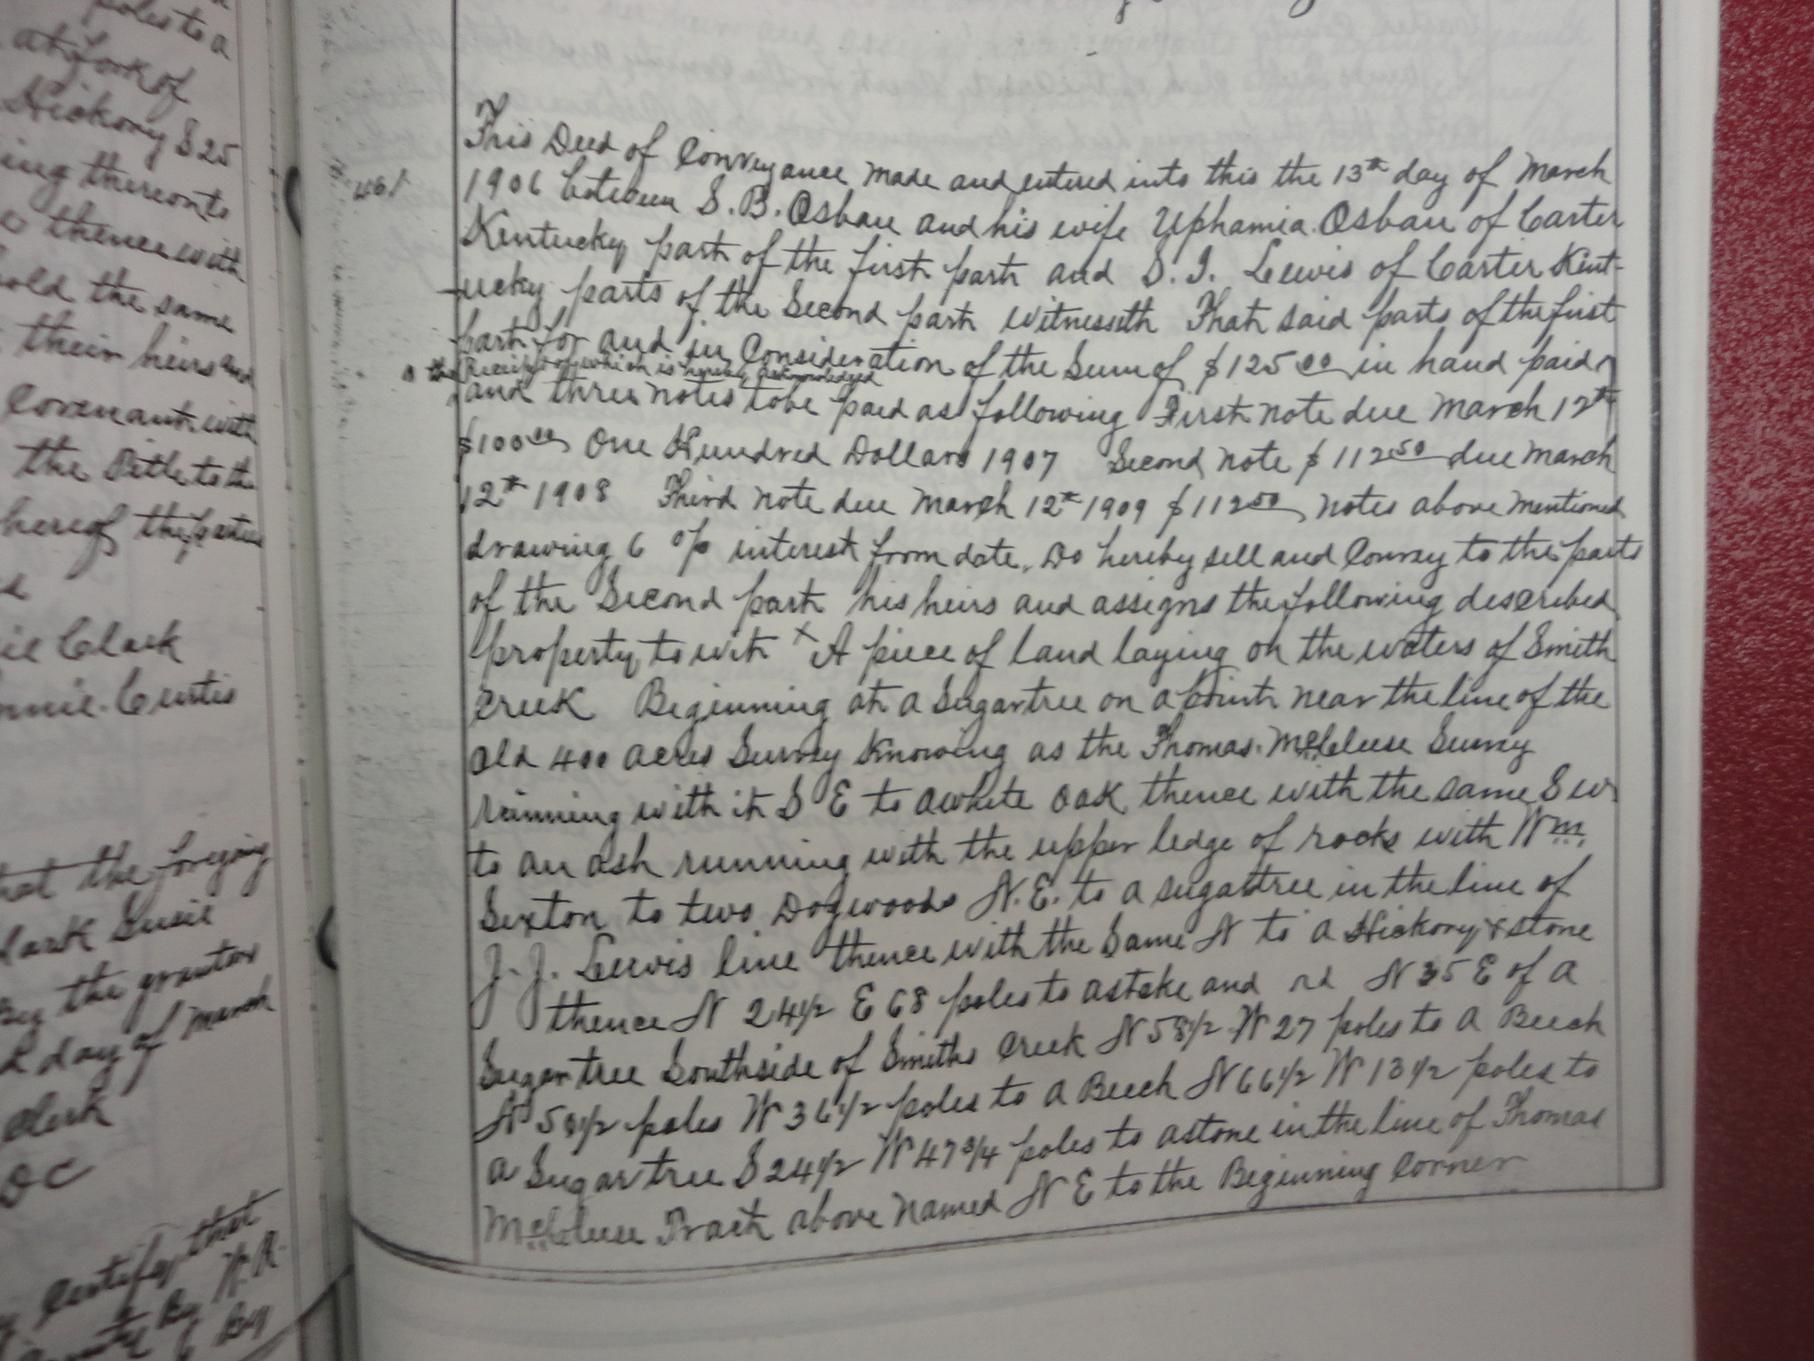 poles to a
at fork of
Hickory S 25
ing thereonto
thence with
old the same
their heirs and
Covenant with
the Title to the
hereof the parties
ie Clark
nnie. Curtis
hat the foregoing
lark Susie
By the grantor
day of March
Clerk
DC
Certify that
By W.R.
By
461
This Deed of Conveyance made and entered into this the 13th day of March
1906 between S. B. Osbau and his wife Uphamia Osbau of Carter
Kentucky part of the first part and S. J. Lewis of Carter Kint-
ucky parts of the Second part witnesseth That said parts of the first
part for and in Consideration of the Sum of $125 00 in hand paid
the Reciept of which is hereby acknowledged
and three notes to be paid as following First note due March 12th
$100 00 One Hundred Dollars 1907 Second note $112 50 due March
12th 1908 Third note due March 12th 1909 $112 50 notes above mentioned
drawing 6 % interest from date. Do hereby sell and Convey to the parts
of the Second part his heirs and assigns the following described
property to wit x A piece of land laying on the waters of Smith
Creek Beginning at a Sugartree on a point near the line of the
old 400 acres Survey Knowing as the Thomas. McCleluse Survey
running with it S E to a white oak thence with the same S W
to an ash running with the upper ledge of rocks with Wm.
Sexton to two Dogwoods N. E. to a sugartree in the line of
J. J. Lewis line thence with the Same N to a Hickory & stone
thence N 24 1/2 E 68 poles to a stake and rd N 35 E of a
Sugar tree Southside of Smiths Creek N 58 1/2 W 27 poles to a Beech
N 58 1/2 poles W 36 1/2 poles to a Beech N 66 1/2 W 13 1/2 poles to
a Sugar tree S 24 1/2 W 47 3/4 poles to a stone in the line of Thomas
McCleluse Tract above named N E to the Beginning Corner